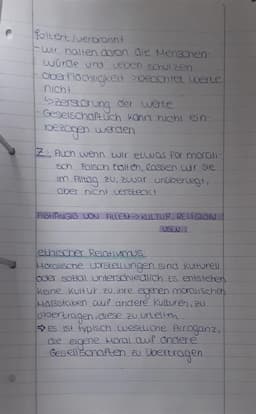 foltert/verbrannt
- wir halten daran die Menschen-
würde und Leben schützen
- Oberflächlichkeit > beachtet Werte
nicht
↳ Zerstörung der Werte
- Gesellschaftlich kann nicht ein-
bezogen werden
Z: Auch wenn wir etwas für morali-
sch falsch halten, lassen wir die
im Alltag zu, zwar unüberlegt,
aber nicht versteckt
ABHÄNGIG VON ALLEM → KULTUR, RELIGION
USW.
ethischer Relativismus:
Moralische Vorstellungen sind kulturell
oder sozial unterschiedlich. Es entstehen
keine Kultur zu, ihre eigenen moralischen
Maßstäben auf andere Kulturen, zu
übertragen, diese zu urteiln
⇒ Es ist typisch westliche Arroganz,
die eigene Moral auf andere
Gesellschaften zu übertragen